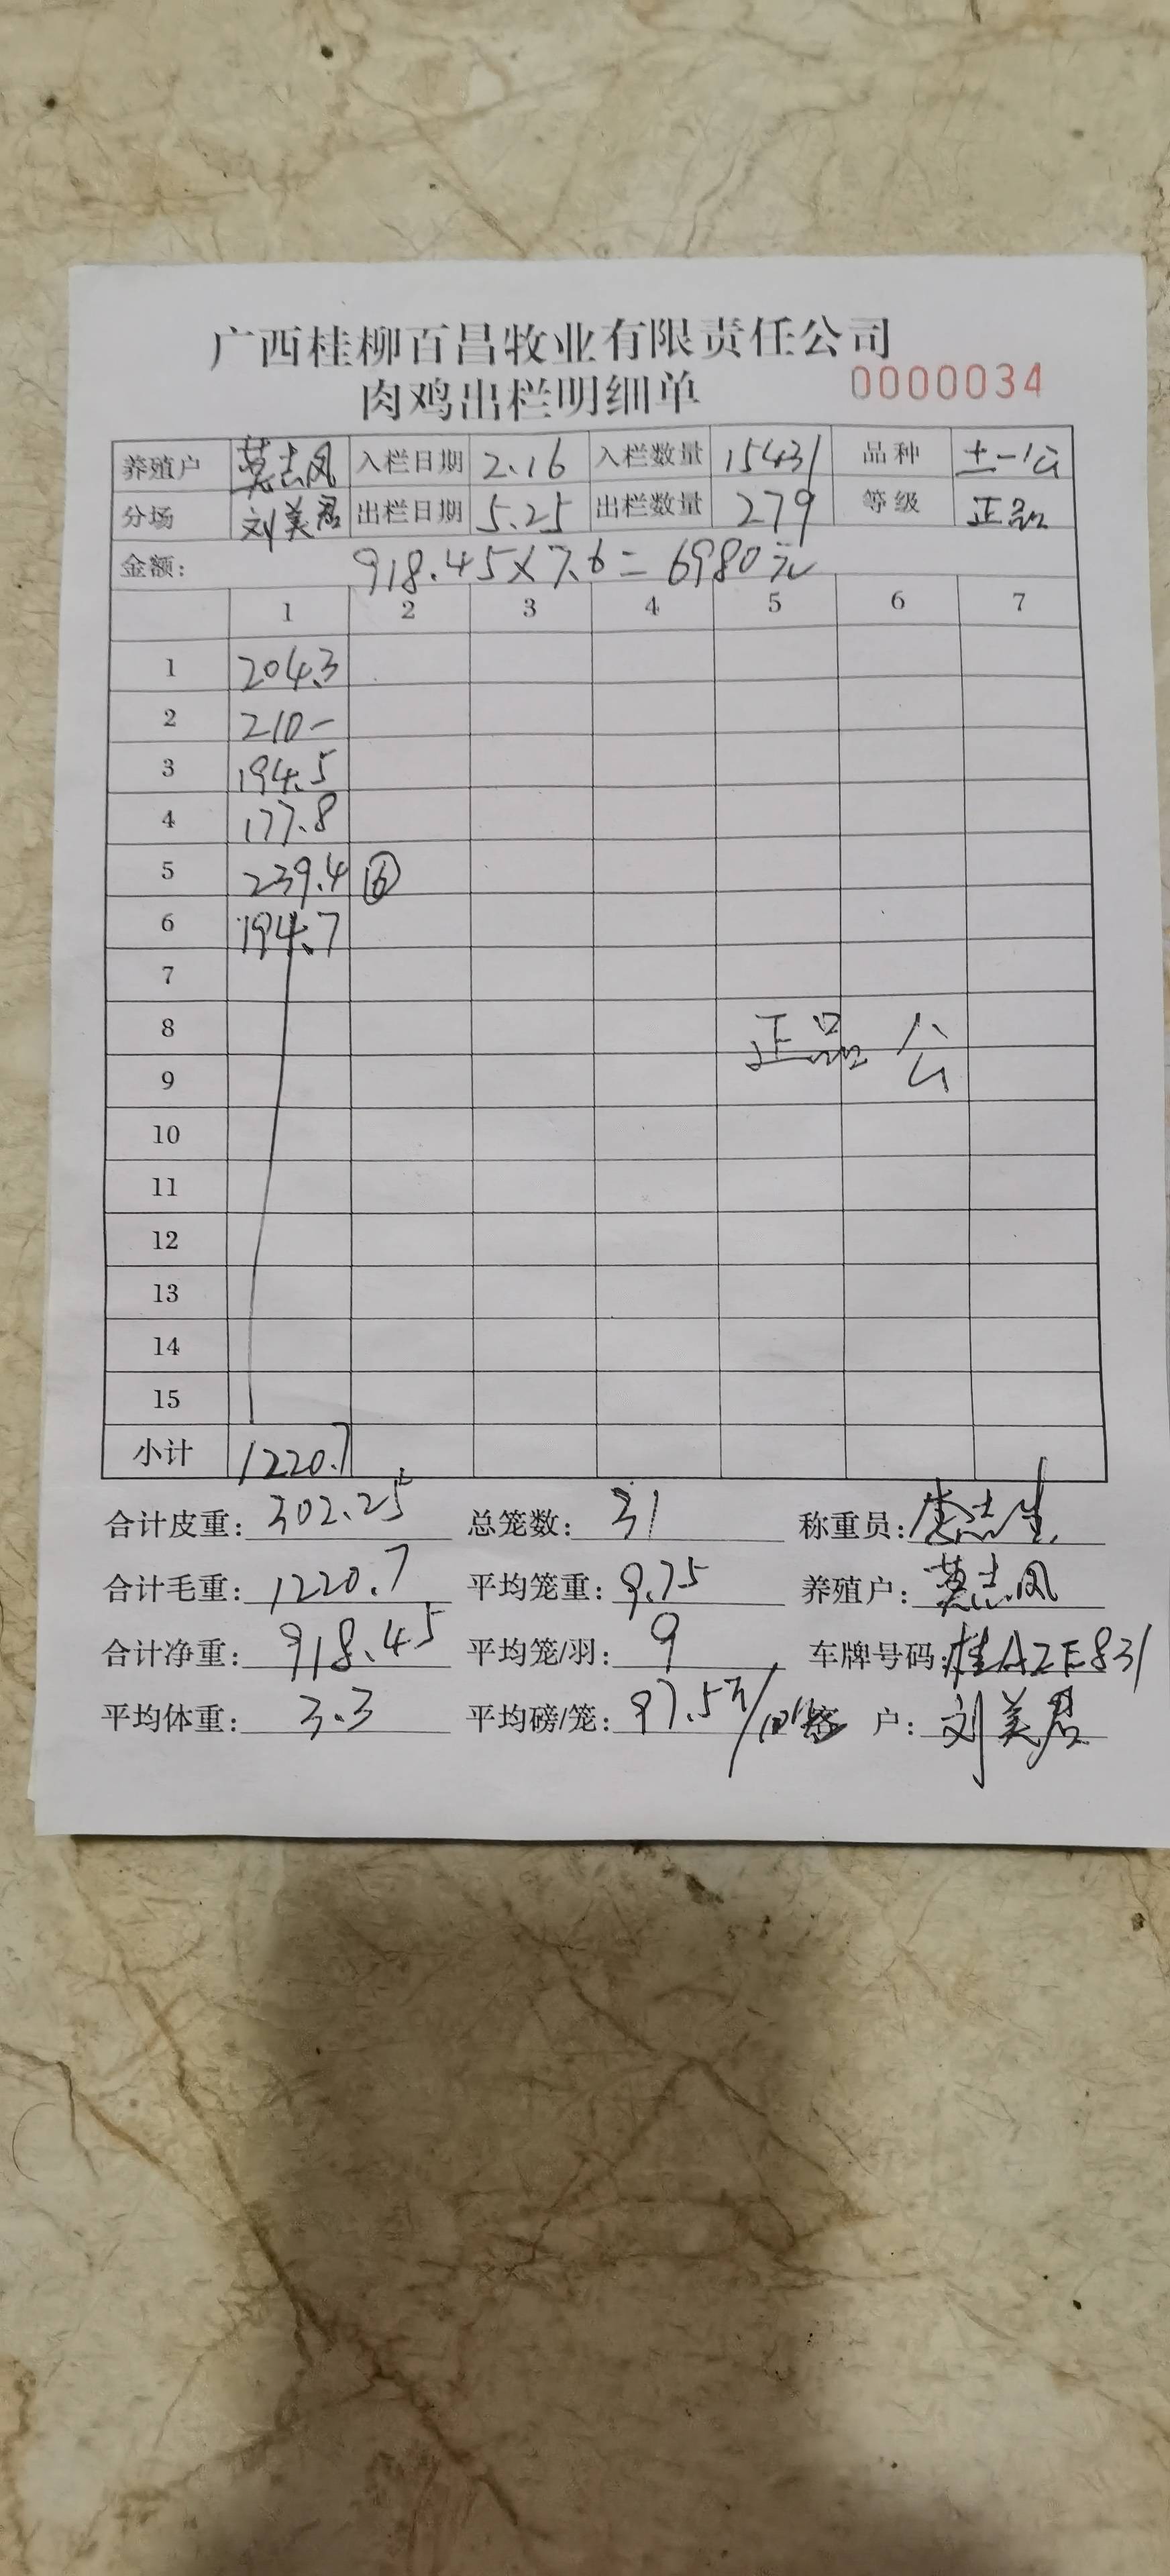 广西桂柳百昌牧业有限责任公司
肉鸡出栏明细单 0000034
养殖户 莫志凤 入栏日期 2.16 入栏数量 15431 品种 土-1公
分场 刘美君 出栏日期 5.25 出栏数量 279 等级 正品
金额: 918.45×7.6=6980元
1 2 3 4 5 6 7
1 204.3
2 210-
3 194.5
4 177.8
5 239.4 ⑥
6 194.7
7
8 正品 公
9
10
11
12
13
14
15
小计 1220.7
合计皮重: 302.25 总笼数: 31 称重员:
合计毛重: 1220.7 平均笼重: 9.75 养殖户: 莫志凤
合计净重: 918.45 平均笼/羽: 9 车牌号码: 桂AZE831
平均体重: 3.3 平均磅/笼: 97.5 户: 刘美君